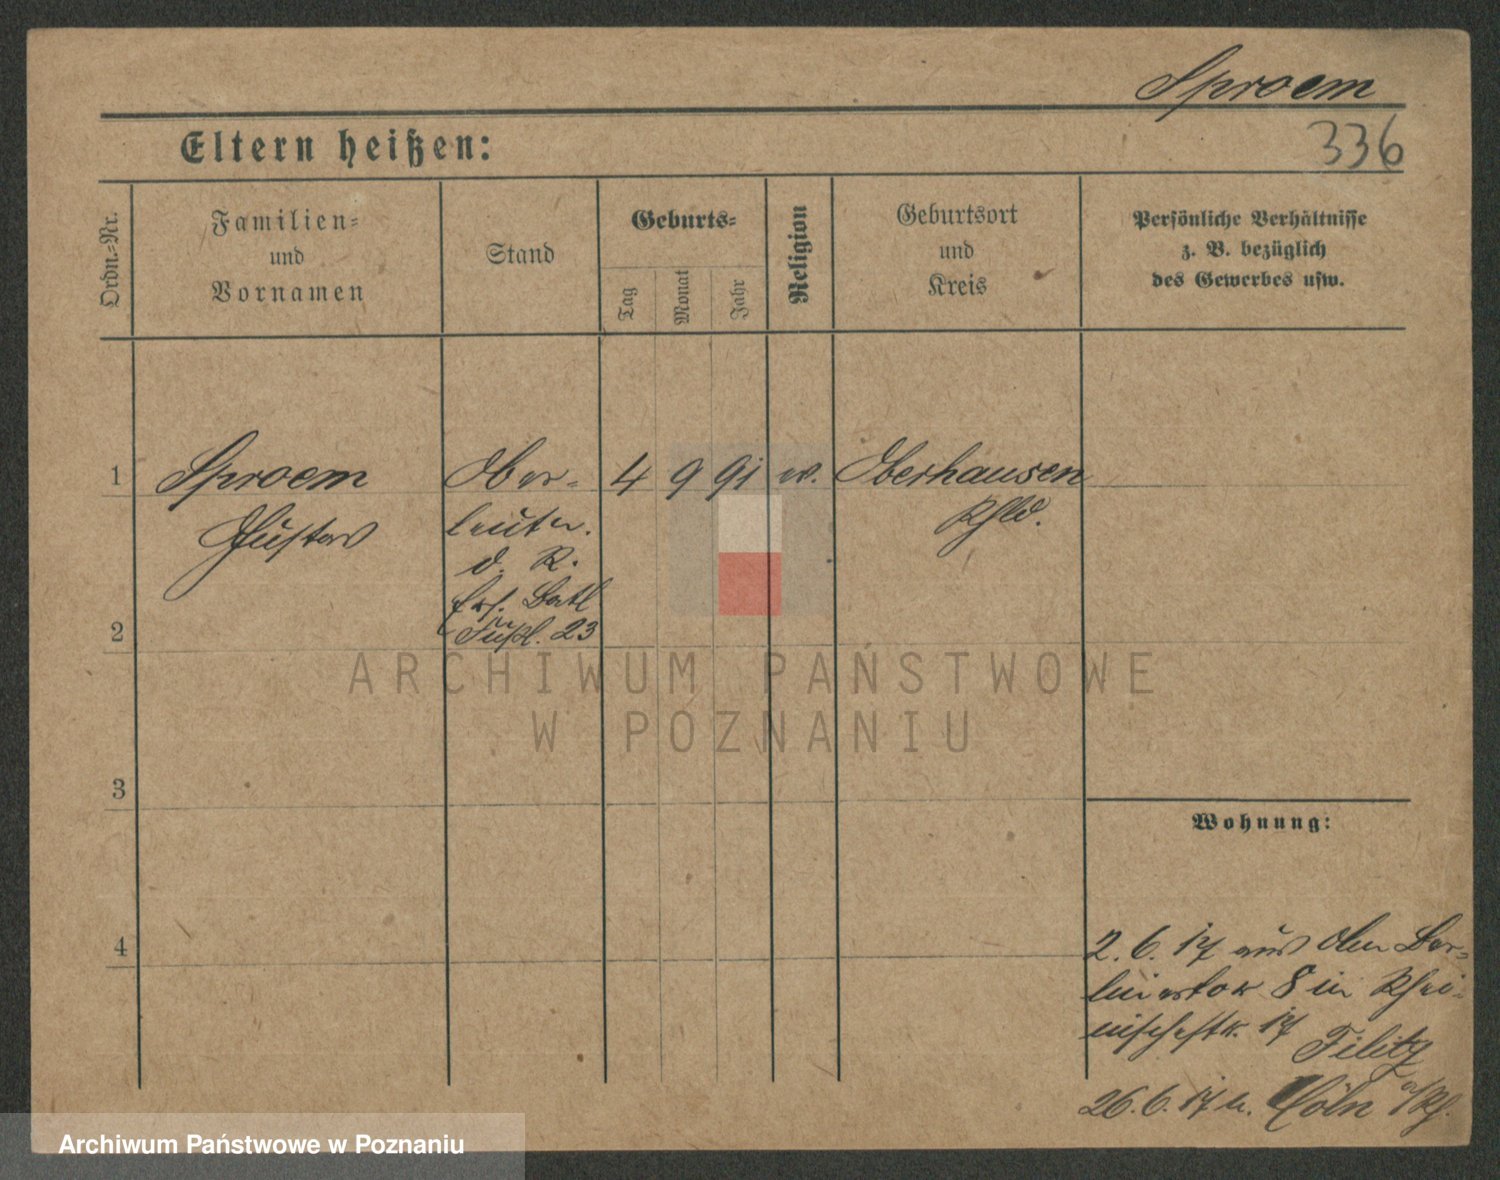 Sproem
Eltern heißen:
336
Ordn.-Nr.
Familien-
und
Vornamen
Stand
Geburts-
Tag
Monat
Jahr
Religion
Geburtsort
und
Kreis
Persönliche Verhältnisse
z. B. bezüglich
des Gewerbes usw.
1 Sproem Ober- 4 9 91 ev. Oberhausen
Gustav leutn. Rhld.
d. R.
Ers. Batl
2 Fußl. 23
ARCHIWUM PAŃSTWOWE
W POZNANIU
3
Wohnung:
4
2. 6. 17 aus Ober Ber-
linertor 8 in Rhei-
nischestr. 17
Filitz
26. 6. 17 n. Cöln a/Rh.
Archiwum Państwowe w Poznaniu